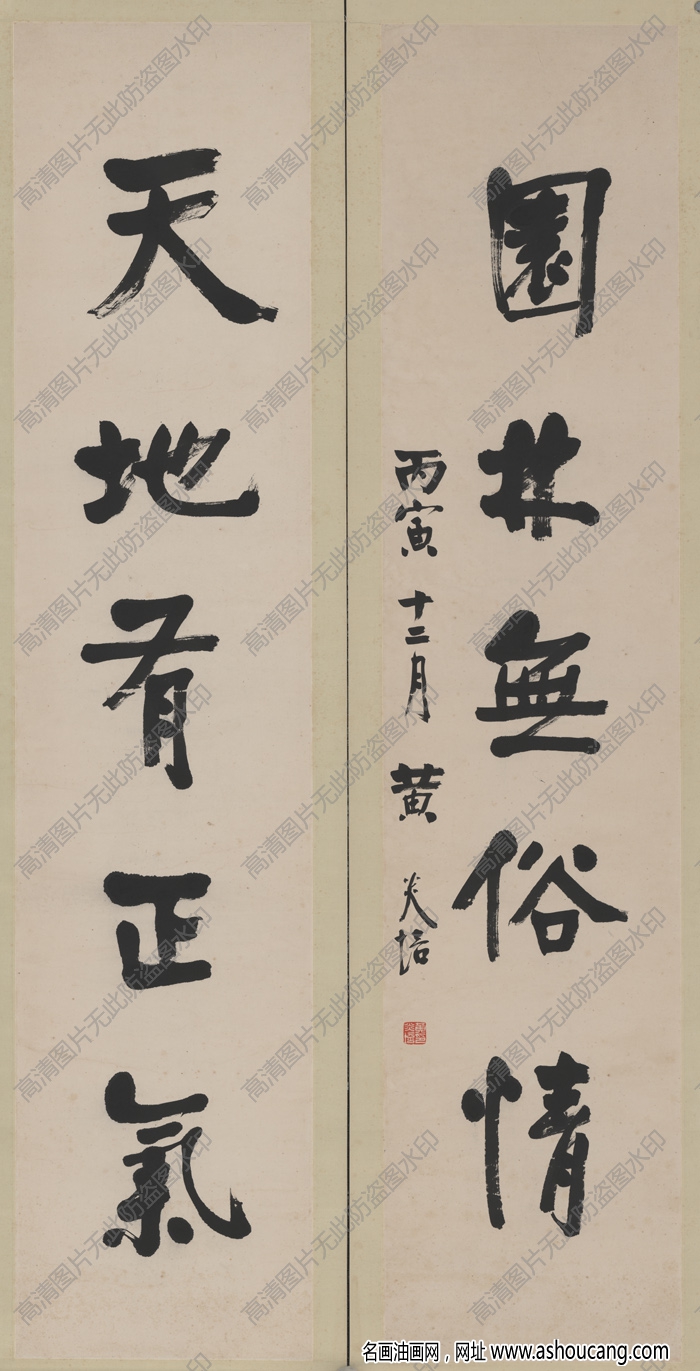 園林無俗情
丙寅十二月 黄炎培
天地有正氣
高清图片无此防盗图水印
名画油画网，网址 www.ashoucang.com